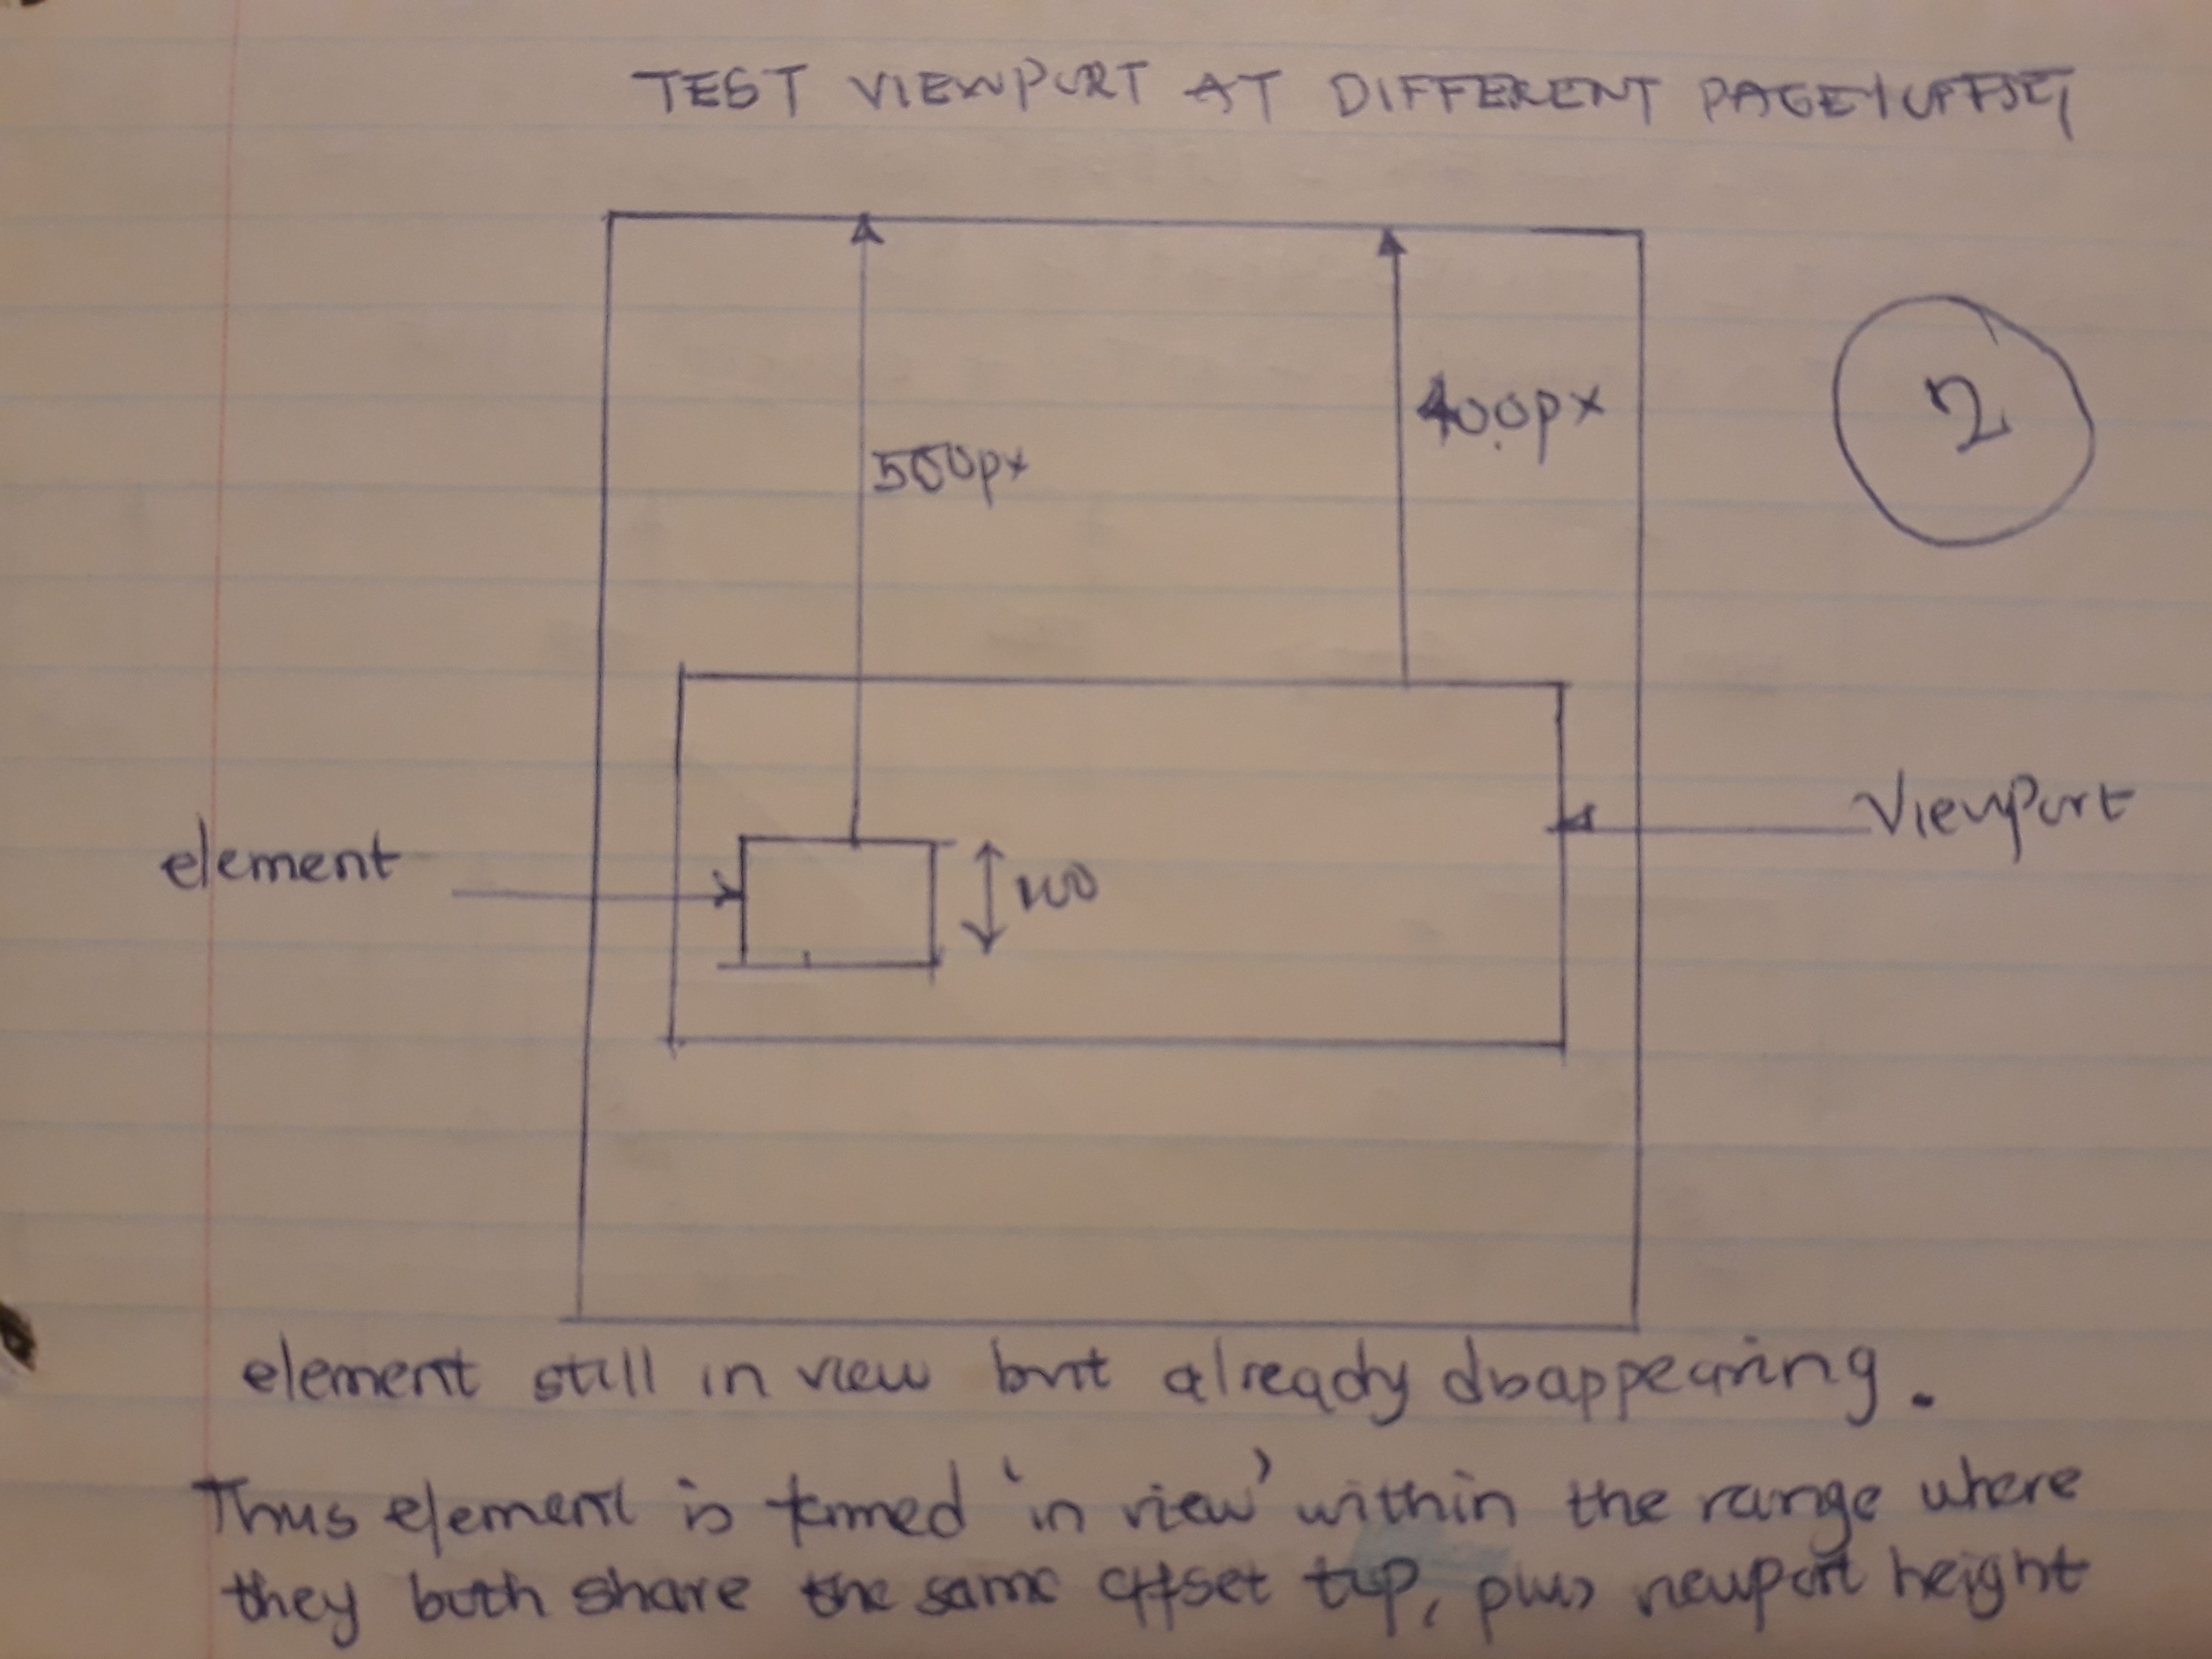 TEST VIEWPORT AT DIFFERENT PAGEYOFFSET
2
400px
500px
Viewport
element
100
element still in view but already disappearing.
Thus element is termed 'in view' within the range where
they both share the same offset top, plus viewport height